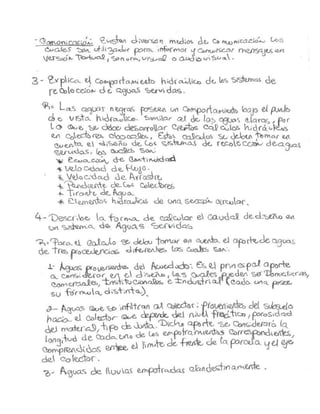 - Comunicación: Existen diversos medios de Comunicación los
cuales son utilizados para informar y comunicar mensajes en
versión textual, sonora, visual o audiovisual.
3- Explica el Comportamiento hidraúlico de los Sistemas de
recolección de aguas servidas.
R= Las aguas negras poseen un comportamiento bajo el punto
de vista hidraulico similar al de las aguas claras, por
lo que se debe desarrollar ciertos calculos hidráulicos
en colectores cloacales. Estos calculos se deben tomar en
cuenta el diseño de los sistemas de recolección de aguas
servidas, los cuales son:
* Ecuación de Continuidad
* Velocidad de Flujo.
* Velocidad de Arrastre
* Pendiente de los Colectores
* Tirante de Agua.
* Elementos hidraulicos de una sección circular.
4- Describe la forma de calcular el caudal de diseño en
un sistema de Aguas Servidas
R= Para el Calculo se debe tomar en cuenta el aporte de aguas
de Tres procedencias diferentes los cuales son:
1- Aguas provenientes del Acueducto: Es el principal aporte
a considerar en el diseño, las cuales pueden ser Domesticas,
comerciales, Institucionales e Industrial (cada una posee
su fórmula distinta).
2- Aguas que se infiltran al colector: Provenientes del subsuelo
hacia el colector que depende del nivel freático, porosidad
del material, tipo de Junta. Dicho aporte se considerará la
longitud de cada uno de los empotramientos correspondientes,
comprendidos entre el límite de frente de la parcela y el eje
del colector.
3- Aguas de lluvias empotradas clandestinamente.